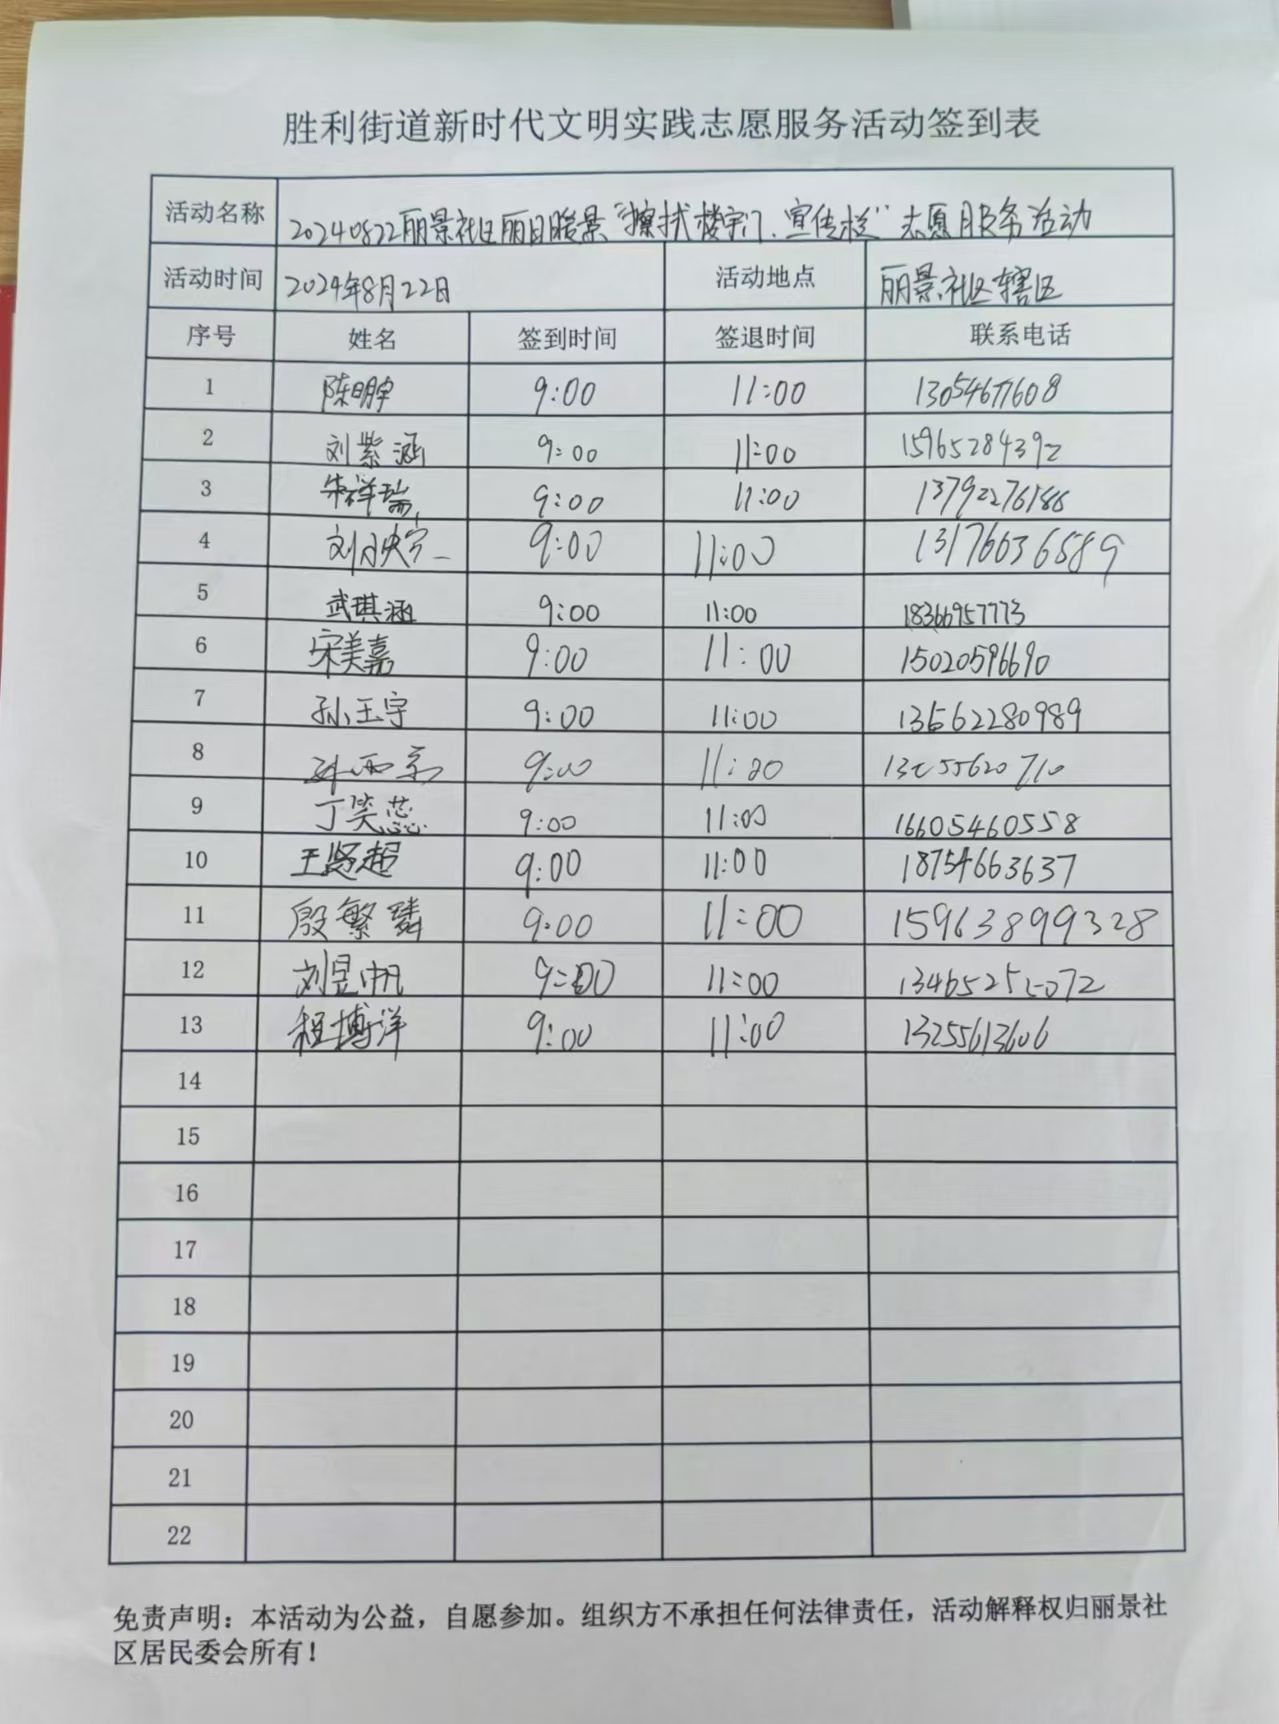 胜利街道新时代文明实践志愿服务活动签到表
活动名称 20240822丽景社区丽日暖景“擦扰楼宇门、宣传栏”志愿服务活动
活动时间 2024年8月22日 活动地点 丽景社区辖区
序号 姓名 签到时间 签退时间 联系电话
1 陈明宇 9:00 11:00 13054677608
2 刘紫涵 9:00 11:00 15965284392
3 朱祥瑞 9:00 11:00 13792276186
4 9:00 11:00 13176636589
5 武琪涵 9:00 11:00 18366957773
6 宋美嘉 9:00 11:00 15020596690
7 孙玉宇 9:00 11:00 13562280989
8 9:00 11:00
9 丁笑蕊 9:00 11:00 16605460558
10 王贤超 9:00 11:00 18754663637
11 殷繁璘 9:00 11:00 15963899328
12 刘昱帆 9:00 11:00
13 程搏洋 9:00 11:00 13255613606
14
15
16
17
18
19
20
21
22
免责声明：本活动为公益，自愿参加。组织方不承担任何法律责任，活动解释权归丽景社
区居民委会所有！